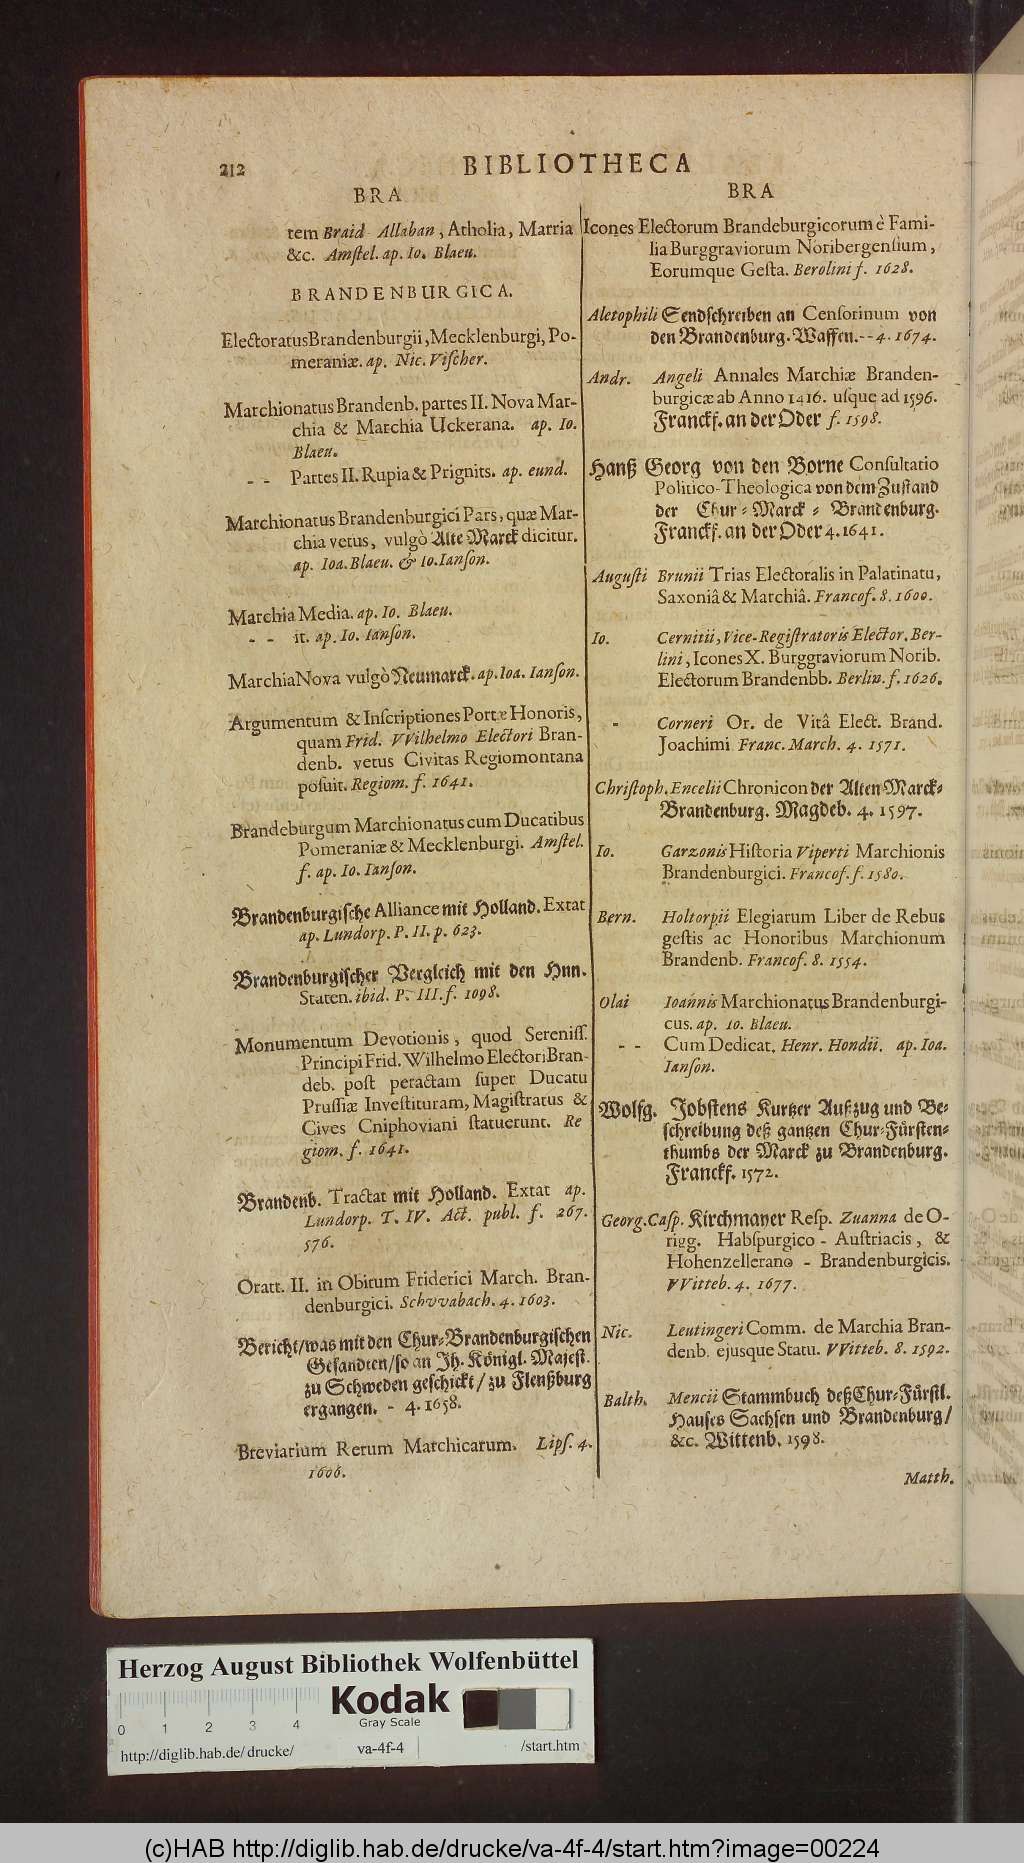 212
BIBLIOTHECA
BRA
tem Braid Allaban, Atholia, Marria
&c. Amſtel. ap. Io. Blaeu.
BRANDENBURGICA.
Electoratus Brandenburgii, Mecklenburgi, Po-
meraniæ. ap. Nic. Viſcher.
Marchionatus Brandenb. partes II. Nova Mar-
chia & Marchia Uckerana. ap. Io.
Blaeu.
- - Partes II. Rupia & Prignits. ap. eund.
Marchionatus Brandenburgici Pars, quæ Mar-
chia vetus, vulgò Alte Marck dicitur.
ap. Ioa. Blaeu. & Io. Ianſon.
Marchia Media. ap. Io. Blaeu.
- - it. ap. Io. Ianſon.
Marchia Nova vulgò Neumarck. ap. Ioa. Ianſon.
Argumentum & Inſcriptiones Portæ Honoris,
quam Frid. VVilhelmo Electori Bran-
denb. vetus Civitas Regiomontana
poſuit. Regiom. f. 1641.
Brandeburgum Marchionatus cum Ducatibus
Pomeraniæ & Mecklenburgi. Amſtel.
f. ap. Io. Ianſon.
Brandenburgiſche Alliance mit Holland. Extat
ap. Lundorp. P. II. p. 623.
Brandenburgiſcher Vergleich mit den Hnn.
Staten. ibid. P. III. f. 1098.
Monumentum Devotionis, quod Sereniſſ.
Principi Frid. Wilhelmo Electori Bran-
deb. poſt peractam ſuper Ducatu
Pruſſiæ Inveſtituram, Magiſtratus &
Cives Cniphoviani ſtatuerunt. Re
giom. f. 1641.
Brandenb. Tractat mit Holland. Extat ap.
Lundorp. T. IV. Act. publ. f. 267.
576.
Oratt. II. in Obitum Friderici March. Bran-
denburgici. Schvvabach. 4. 1603.
Bericht/was mit den Chur-Brandenburgiſchen
Geſandten/ſo an Jh. Königl. Majeſt.
zu Schweden geſchickt/zu Flenßburg
ergangen. - 4. 1658.
Breviarium Rerum Marchicarum. Lipſ. 4.
1606.
BRA
Icones Electorum Brandeburgicorum è Fami-
lia Burggraviorum Noribergenſium,
Eorumque Geſta. Berolini f. 1628.
Aletophili Sendſchreiben an Cenſorinum von
den Brandenburg. Waffen. -- 4. 1674.
Andr. Angeli Annales Marchiæ Branden-
burgicæ ab Anno 1416. uſque ad 1596.
Franckf. an der Oder f. 1598.
Hanß Georg von den Borne Conſultatio
Politico-Theologica von dem Zuſtand
der Chur-Marck-Brandenburg.
Franckf. an der Oder 4. 1641.
Auguſti Brunii Trias Electoralis in Palatinatu,
Saxoniâ & Marchiâ. Francof. 8. 1600.
Io. Cernitii, Vice-Regiſtratoris Elector. Ber-
lini, Icones X. Burggraviorum Norib.
Electorum Brandenbb. Berlin. f. 1626.
- Corneri Or. de Vitâ Elect. Brand.
Joachimi Franc. March. 4. 1571.
Chriſtoph. Encelii Chronicon der Alten Marck-
Brandenburg. Magdeb. 4. 1597.
Io. Garzonis Hiſtoria Viperti Marchionis
Brandenburgici. Francof. f. 1580.
Bern. Holtorpii Elegiarum Liber de Rebus
geſtis ac Honoribus Marchionum
Brandenb. Francof. 8. 1554.
Olai Ioannis Marchionatus Brandenburgi-
cus. ap. Io. Blaeu.
- - Cum Dedicat. Henr. Hondii. ap. Ioa.
Ianſon.
Wolfg. Jobſtens Kurtzer Außzug und Be-
ſchreibung deß gantzen Chur-Fürſten-
thumbs der Marck zu Brandenburg.
Franckf. 1572.
Georg. Caſp. Kirchmayer Reſp. Zuanna de O-
rigg. Habſpurgico - Auſtriacis, &
Hohenzellerano - Brandenburgicis.
VVitteb. 4. 1677.
Nic. Leutingeri Comm. de Marchia Bran-
denb. ejusque Statu. VVitteb. 8. 1592.
Balth. Mencii Stammbuch deß Chur-Fürſtl.
Hauſes Sachſen und Brandenburg/
&c. Wittenb. 1598.
Matth.
Herzog August Bibliothek Wolfenbüttel
Kodak
Gray Scale
0 1 2 3 4
http://diglib.hab.de/drucke/ va-4f-4 /start.htm
(c)HAB http://diglib.hab.de/drucke/va-4f-4/start.htm?image=00224